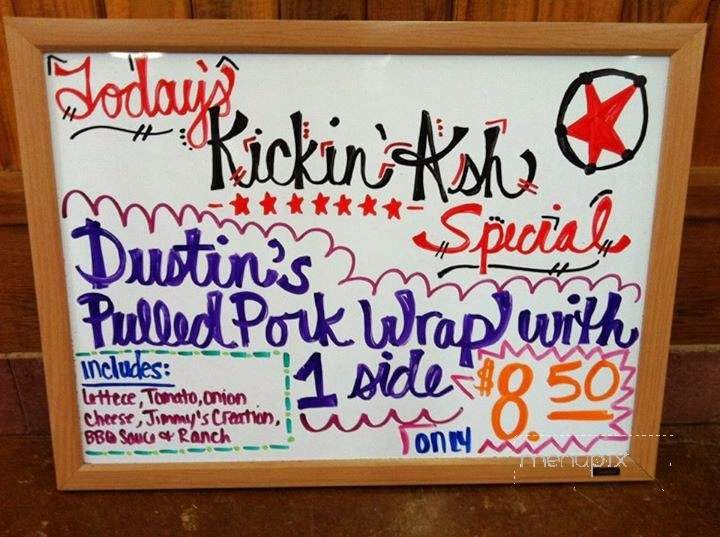 Today's
Kickin' Ash
Special
Dustin's
Pulled Pork Wrap with
1 side
$8.50
only
includes:
Lettece, Tomato, onion
Cheese, Jimmy's Creation,
BBQ Sauce & Ranch
menupix